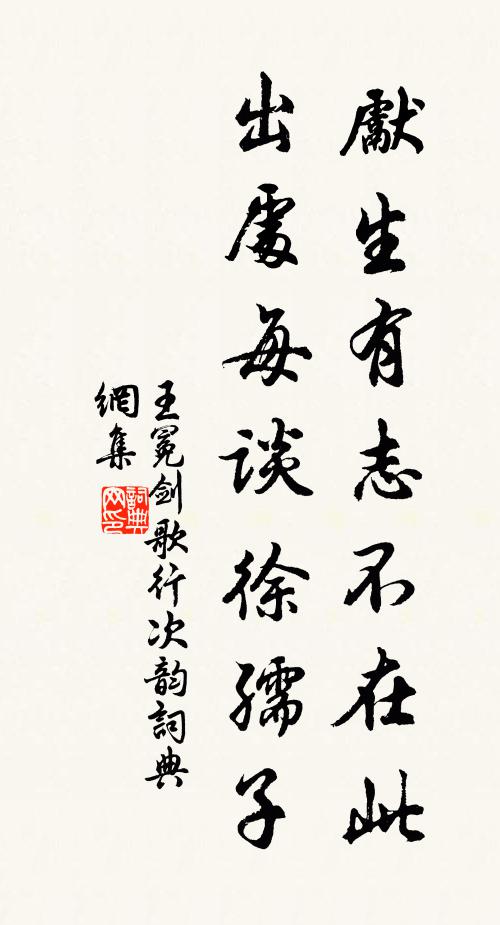 獻生有志不在此
出處每談徐孺子
王冕劍歌行次韵詞典
網集
詞典
网印